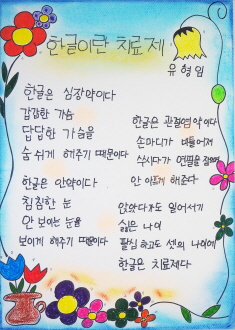 한글이란 치료제
유형임
한글은 심장약이다
갑갑한 가슴
답답한 가슴을
숨 쉬게 해주기 때문이다
한글은 안약이다
침침한 눈
안 보이는 눈을
보이게 해주기 때문이다
한글은 관절염 약이다
손마디가 비틀어져
쑤시다가 연필을 잡으면
안 아프게 해준다
앉았다가도 일어서기
싫은 나이
팔십 하고도 셋의 나이에
한글은 치료제다